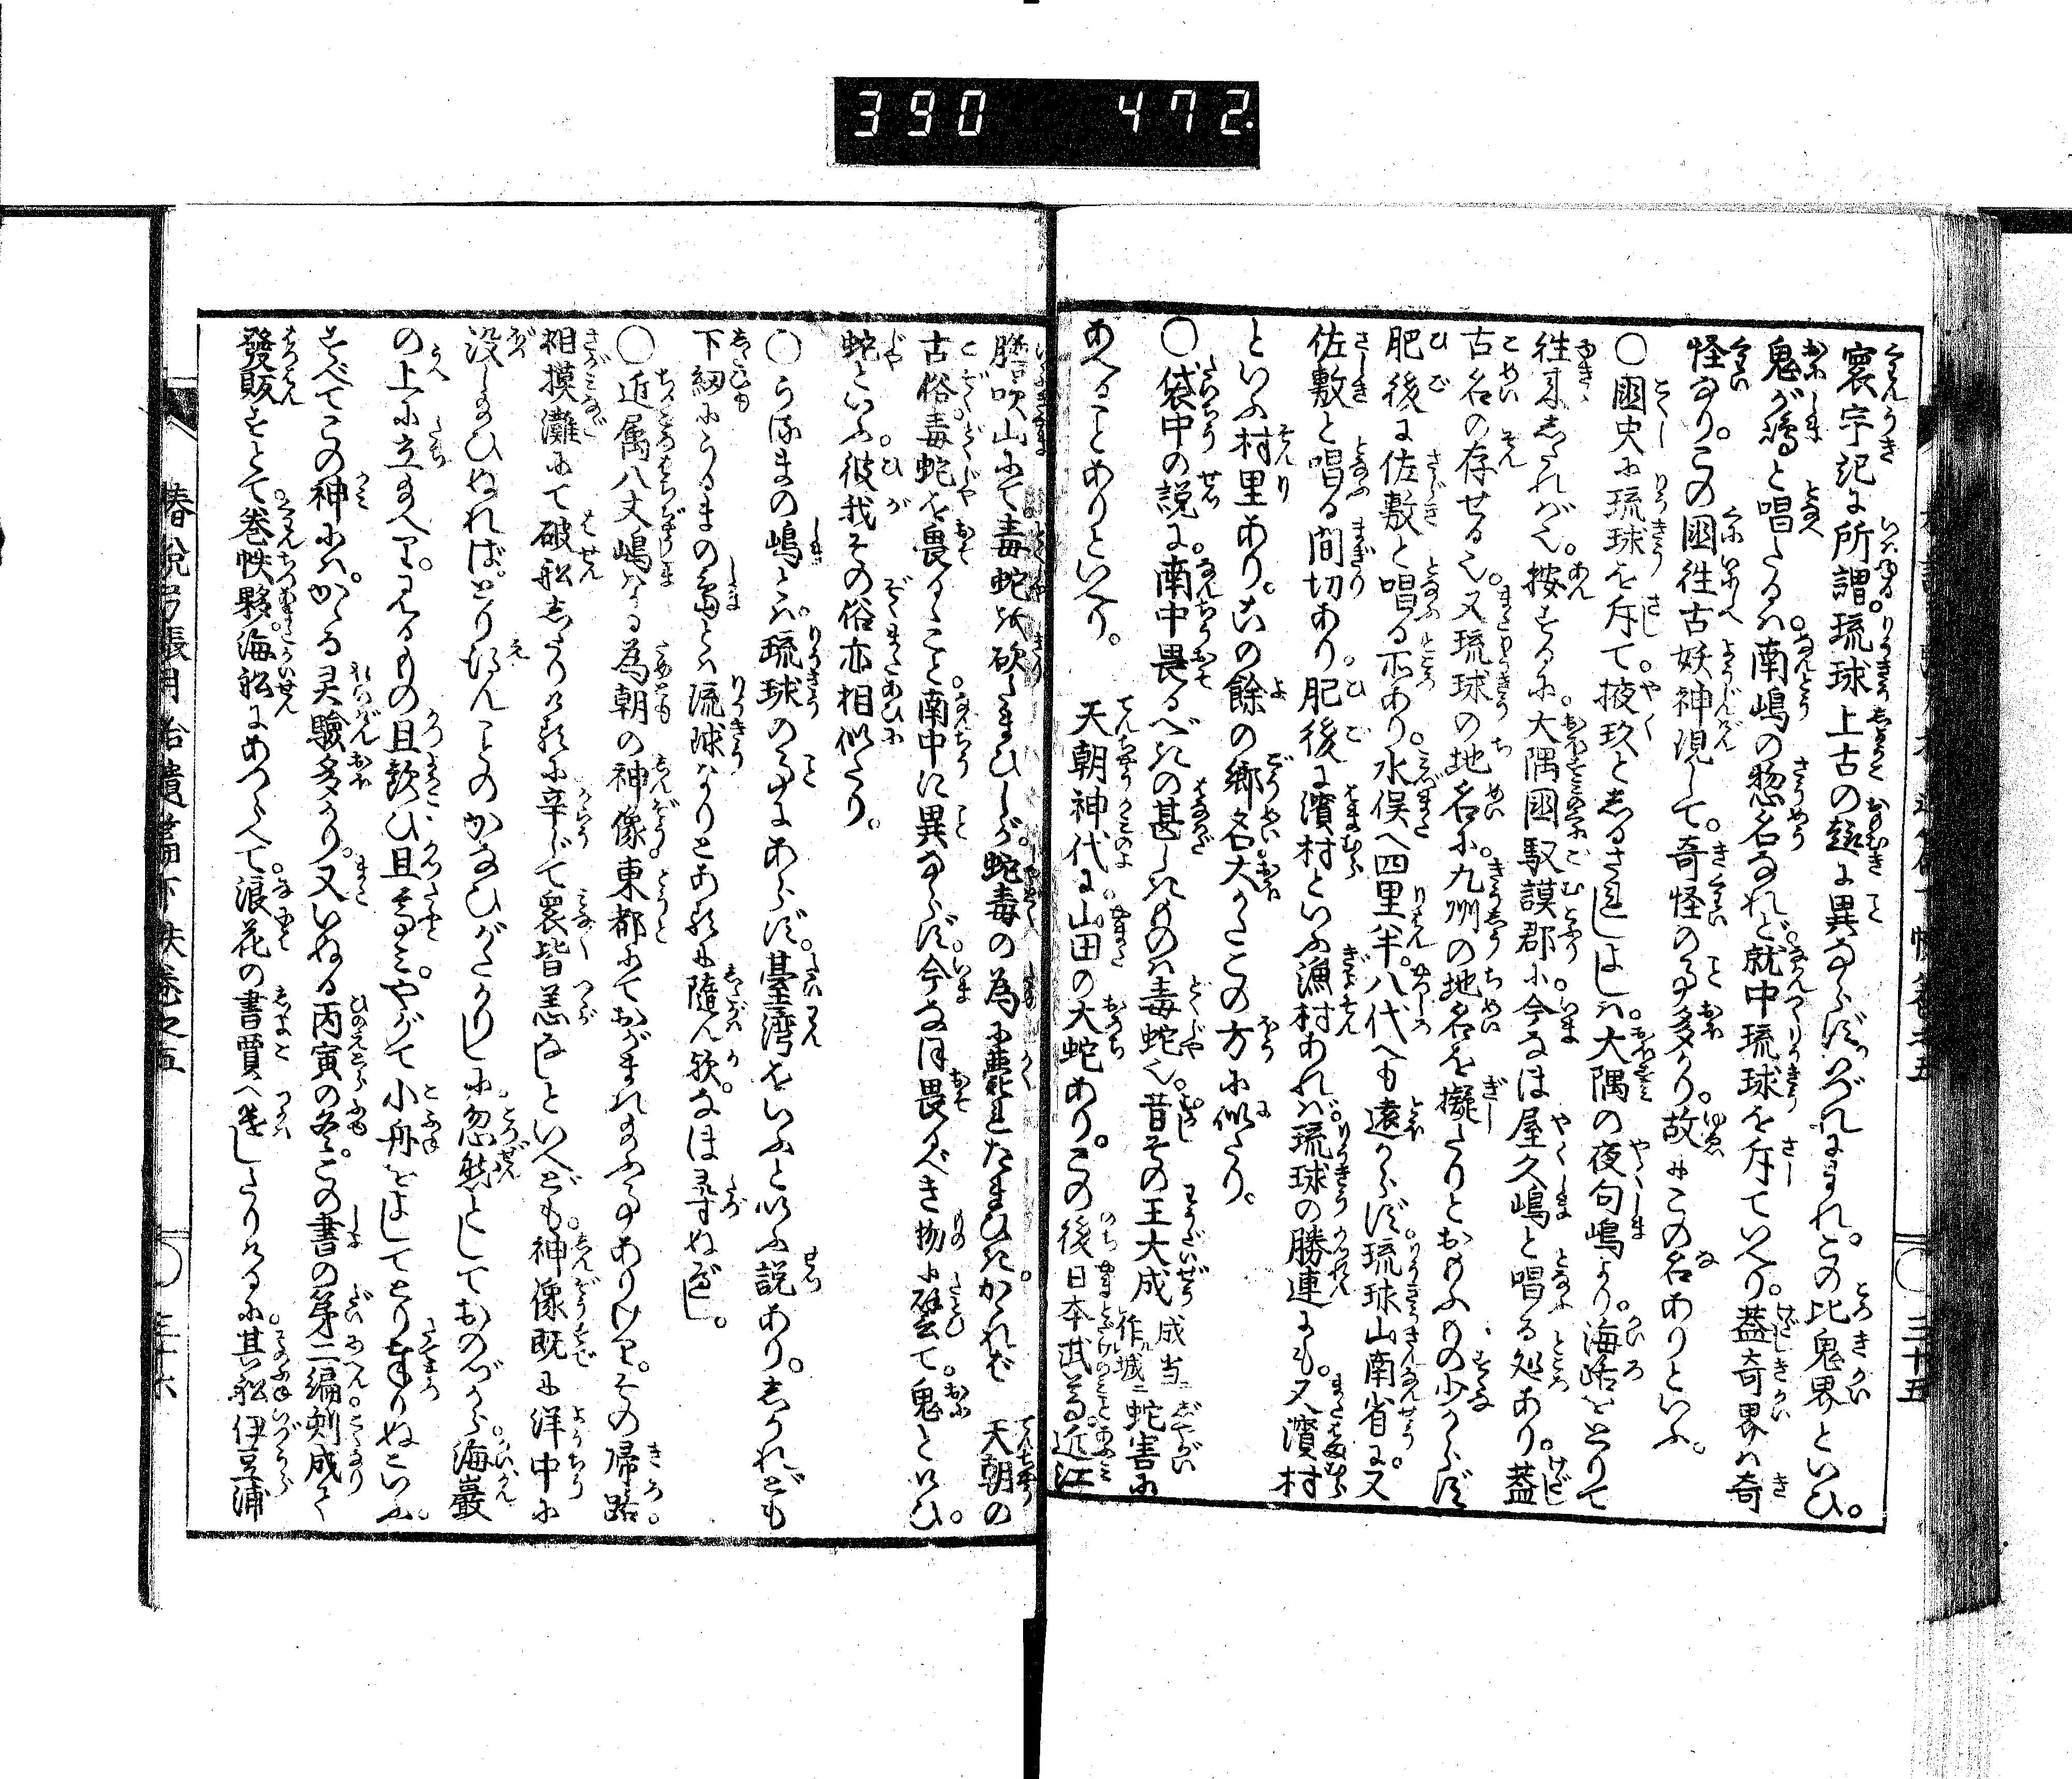 390 472.
寰宇記に所謂。琉球上古の趣に異ならず。いづれにまれ。この比鬼界といひ。
鬼が嶋と唱たるは南嶋の惣名なれど。就中琉球を斥ていへり。蓋奇界は奇
怪なり。この國往古妖神現して。奇怪の事多かり。故にこの名ありといふ。
○國史に琉球を斥て。掖玖としるされしよしは。大隅の夜句嶋より。海路をとりて
往来したれば也。按ずるに。大隅國馭謨郡に。今なほ屋久嶋と唱る処あり。蓋
古名の存せる也。又琉球の地名に。九州の地名を擬たりとおもふもの少からず
肥後に佐敷と唱る所あり。水俣へ四里半。八代へも遠からず。琉球山南省に。又
佐敷と唱る間切あり。肥後に濱村といふ漁村あれば。琉球の勝連にも。又濱村
といふ村里あり。この餘の郷名大かたこの方に似たり。
○袋中の説に。南中畏るべきの甚しきものは毒蛇也。昔その王大成 成当ニ作城ニ 蛇害に
あへることありといへり。 天朝神代に。山田の大蛇あり。この後日本武尊。近江
膽吹山にて。毒蛇を砍たまひしが。蛇毒の為に薨たまひき。かゝれば 天朝の
古俗毒蛇を畏るゝこと。南中に異ならず。今なほ畏るべき物に譬て。鬼といひ。
蛇といふ。彼我その俗亦相似たり。
○うるまの嶋とは。琉球の事にあらず。臺湾をいふといふ説あり。しかれども
下紐にうるまの嶋とは流球なりとあるに隨ん歟。なほ尋ぬべし。
○近属八丈嶋なる為朝の神像。東都にてをがまれ給ふ事ありけり。その帰路。
相摸灘にて破船したりけるに辛じて衆皆恙なしといへども。神像既に洋中に
没し給ひぬれば。とり得んことのかなひがたかりしに忽然としておのづから海巖
の上に立給へり。みるもの且歓び且尊み。やがて小舟をよしてとり奉りぬといふ。
すべてこの神には。かゝる灵驗多かり。又いぬる丙寅の冬。この書の第二編刻成て
發販すとて巻帙夥。海舩にあつらへて。浪花の書賈へ遣したりけるに。其舩伊豆浦
椿説弓張月拾遺篇下帙巻之五
○三十五
○三十六